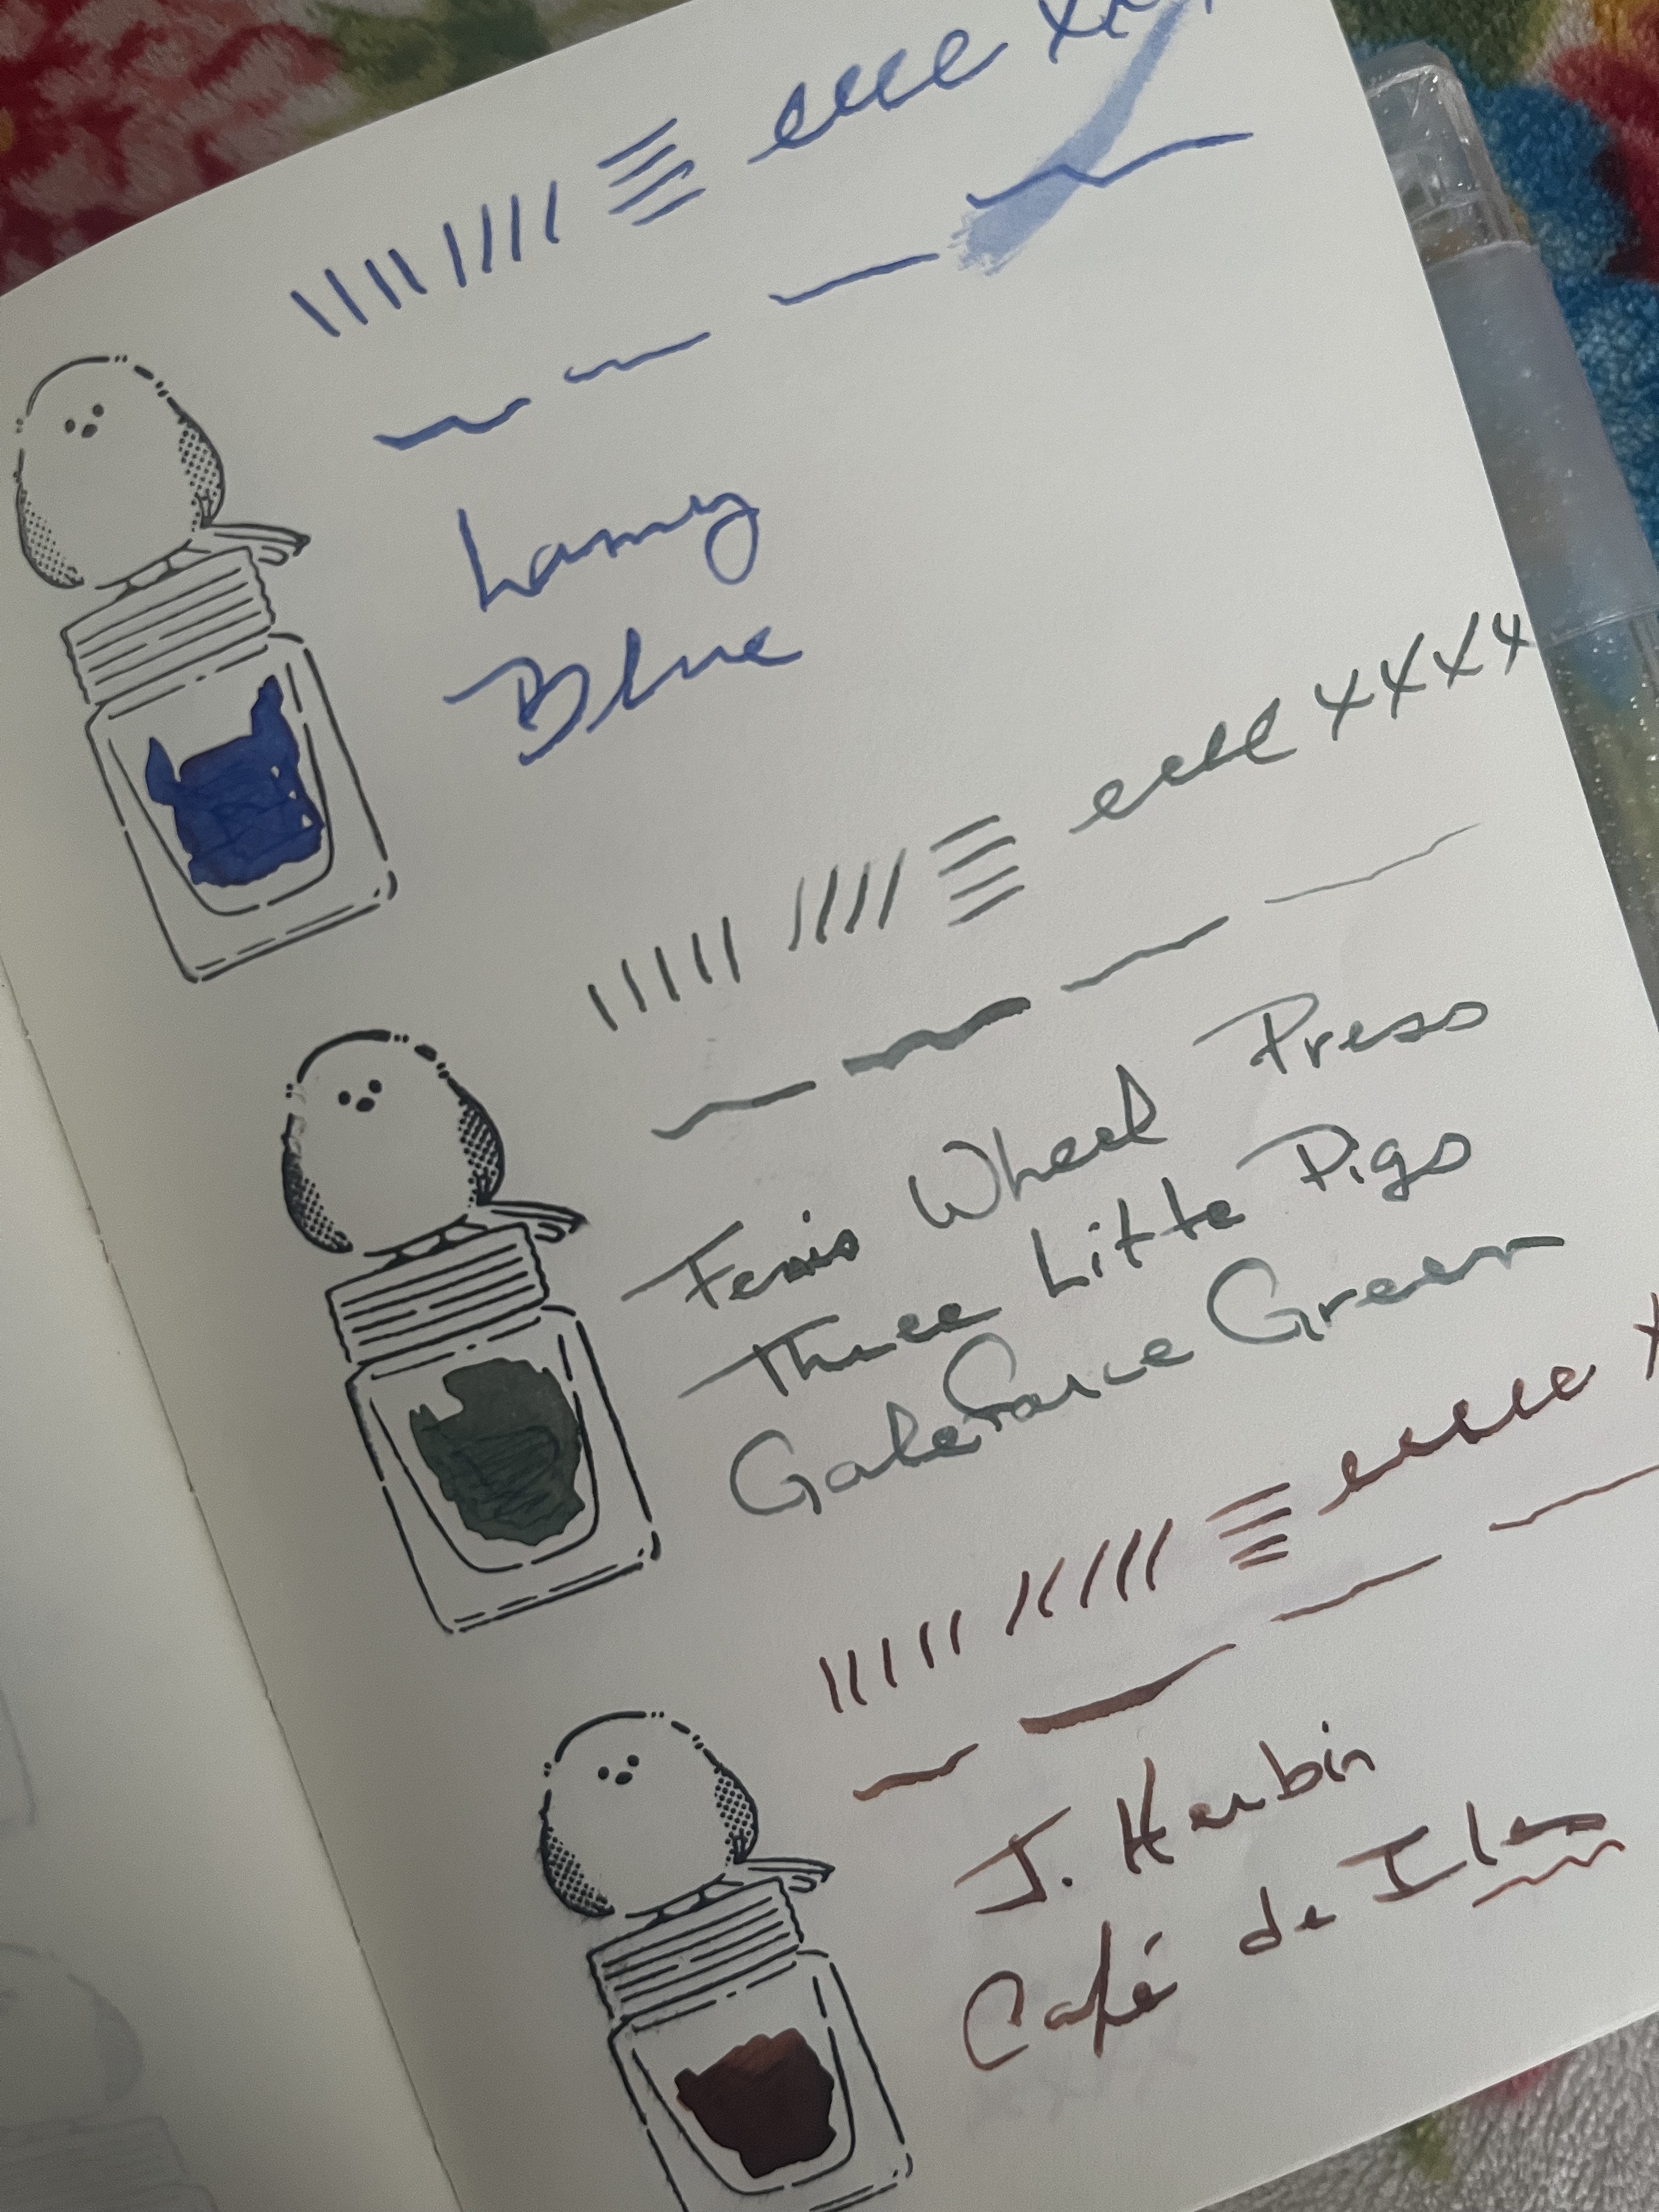 eeee xx
Lamy
Blue
eeee xxxx
Ferris Wheel Press
Three Little Pigs
Gale Force Green
eeeee x
J. Herbin
Café de Iles